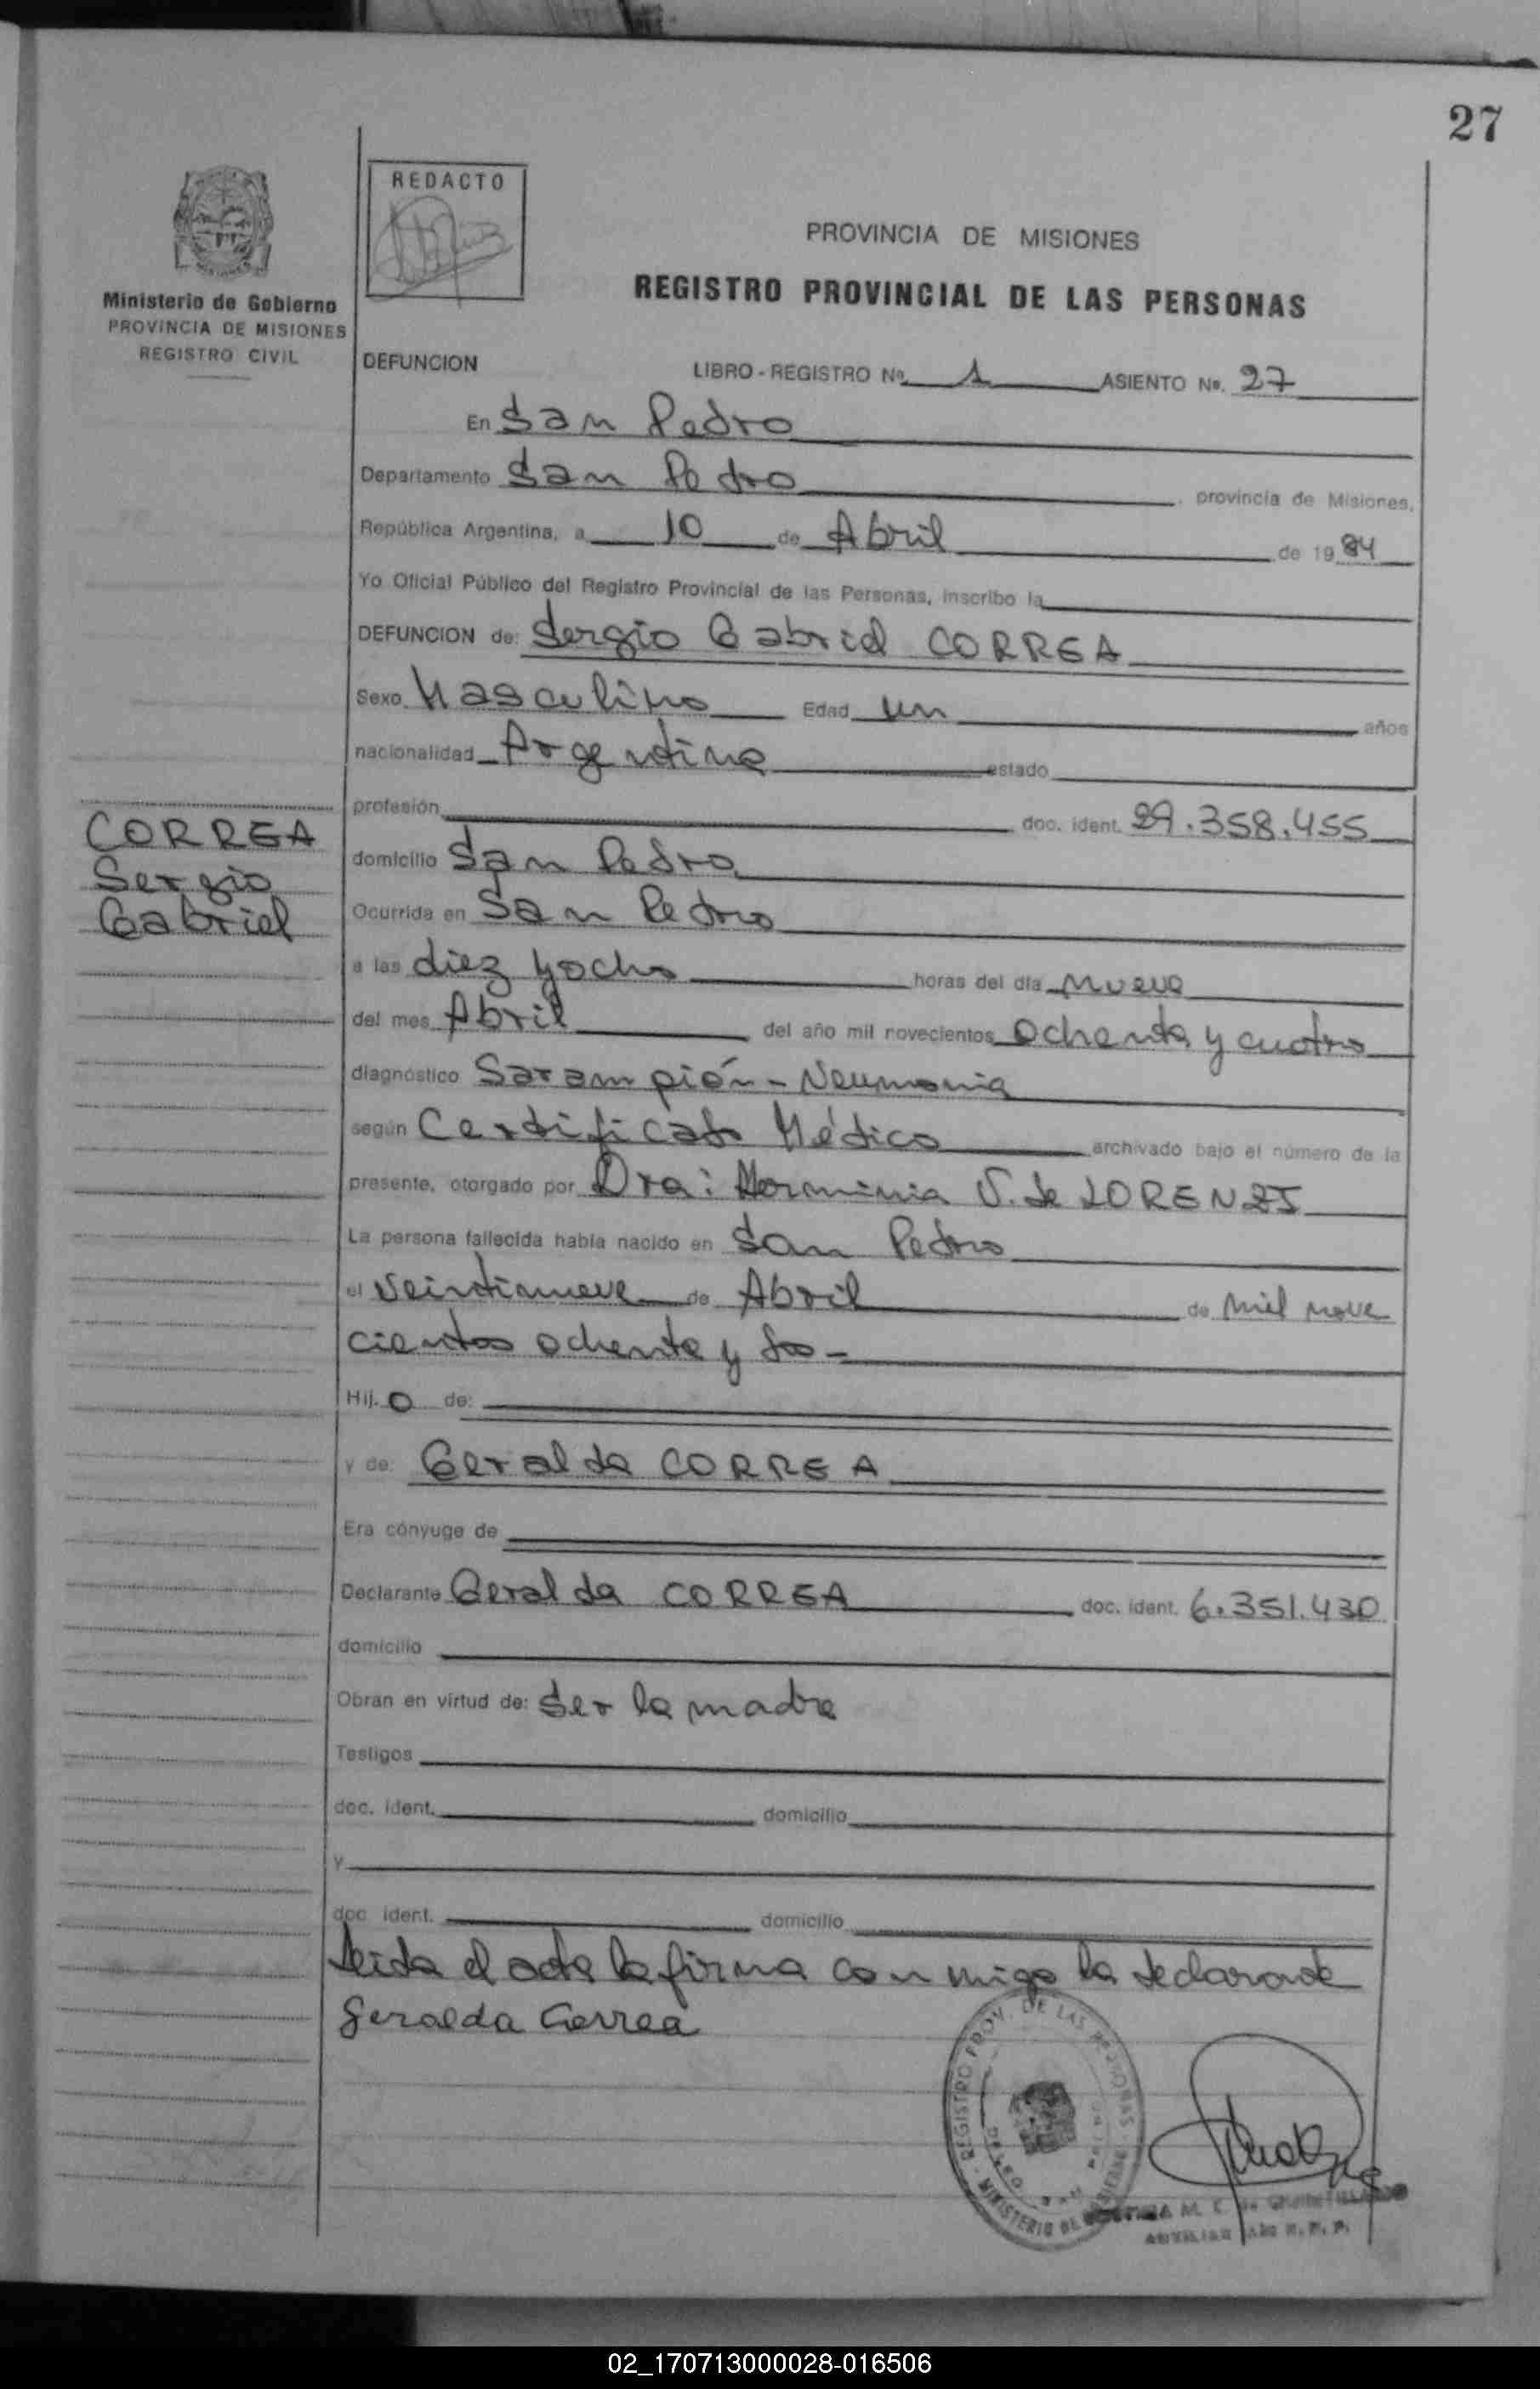 27
REDACTO
PROVINCIA DE MISIONES
REGISTRO PROVINCIAL DE LAS PERSONAS
Ministerio de Gobierno
PROVINCIA DE MISIONES
REGISTRO CIVIL
DEFUNCION LIBRO - REGISTRO Nº 1 ASIENTO Nº. 27
En San Pedro
Departamento San Pedro , provincia de Misiones,
República Argentina, a 10 de Abril de 1984
Yo Oficial Público del Registro Provincial de las Personas, inscribo la
DEFUNCION de: Sergio Gabriel CORREA
Sexo Masculino Edad un años
nacionalidad Argentina estado
profesión doc. ident. 29.358.455
CORREA
Sergio
Gabriel
domicilio San Pedro
Ocurrida en San Pedro
a las diez y ocho horas del día nueve
del mes Abril del año mil novecientos ochenta y cuatro
diagnóstico Sarampión - Neumonia
según Certificato Médico archivado bajo el número de la
presente, otorgado por Dra: Herminia V. de LORENZI
La persona fallecida había nacido en San Pedro
el Veintinueve de Abril de mil nove
cientos ochenta y dos -
Hij. o de:
y de: Geralda CORREA
Era cónyuge de
Declarante Geralda CORREA doc. ident. 6.351.430
domicilio
Obran en virtud de: Ser la madre
Testigos
doc. ident. domicilio
y
doc. ident. domicilio
Leida el acta la firma con migo la declarante
Geralda Correa
REGISTRO PROV. DE LAS PERSONAS
MINISTERIO DE GOBIERNO
02_170713000028-016506